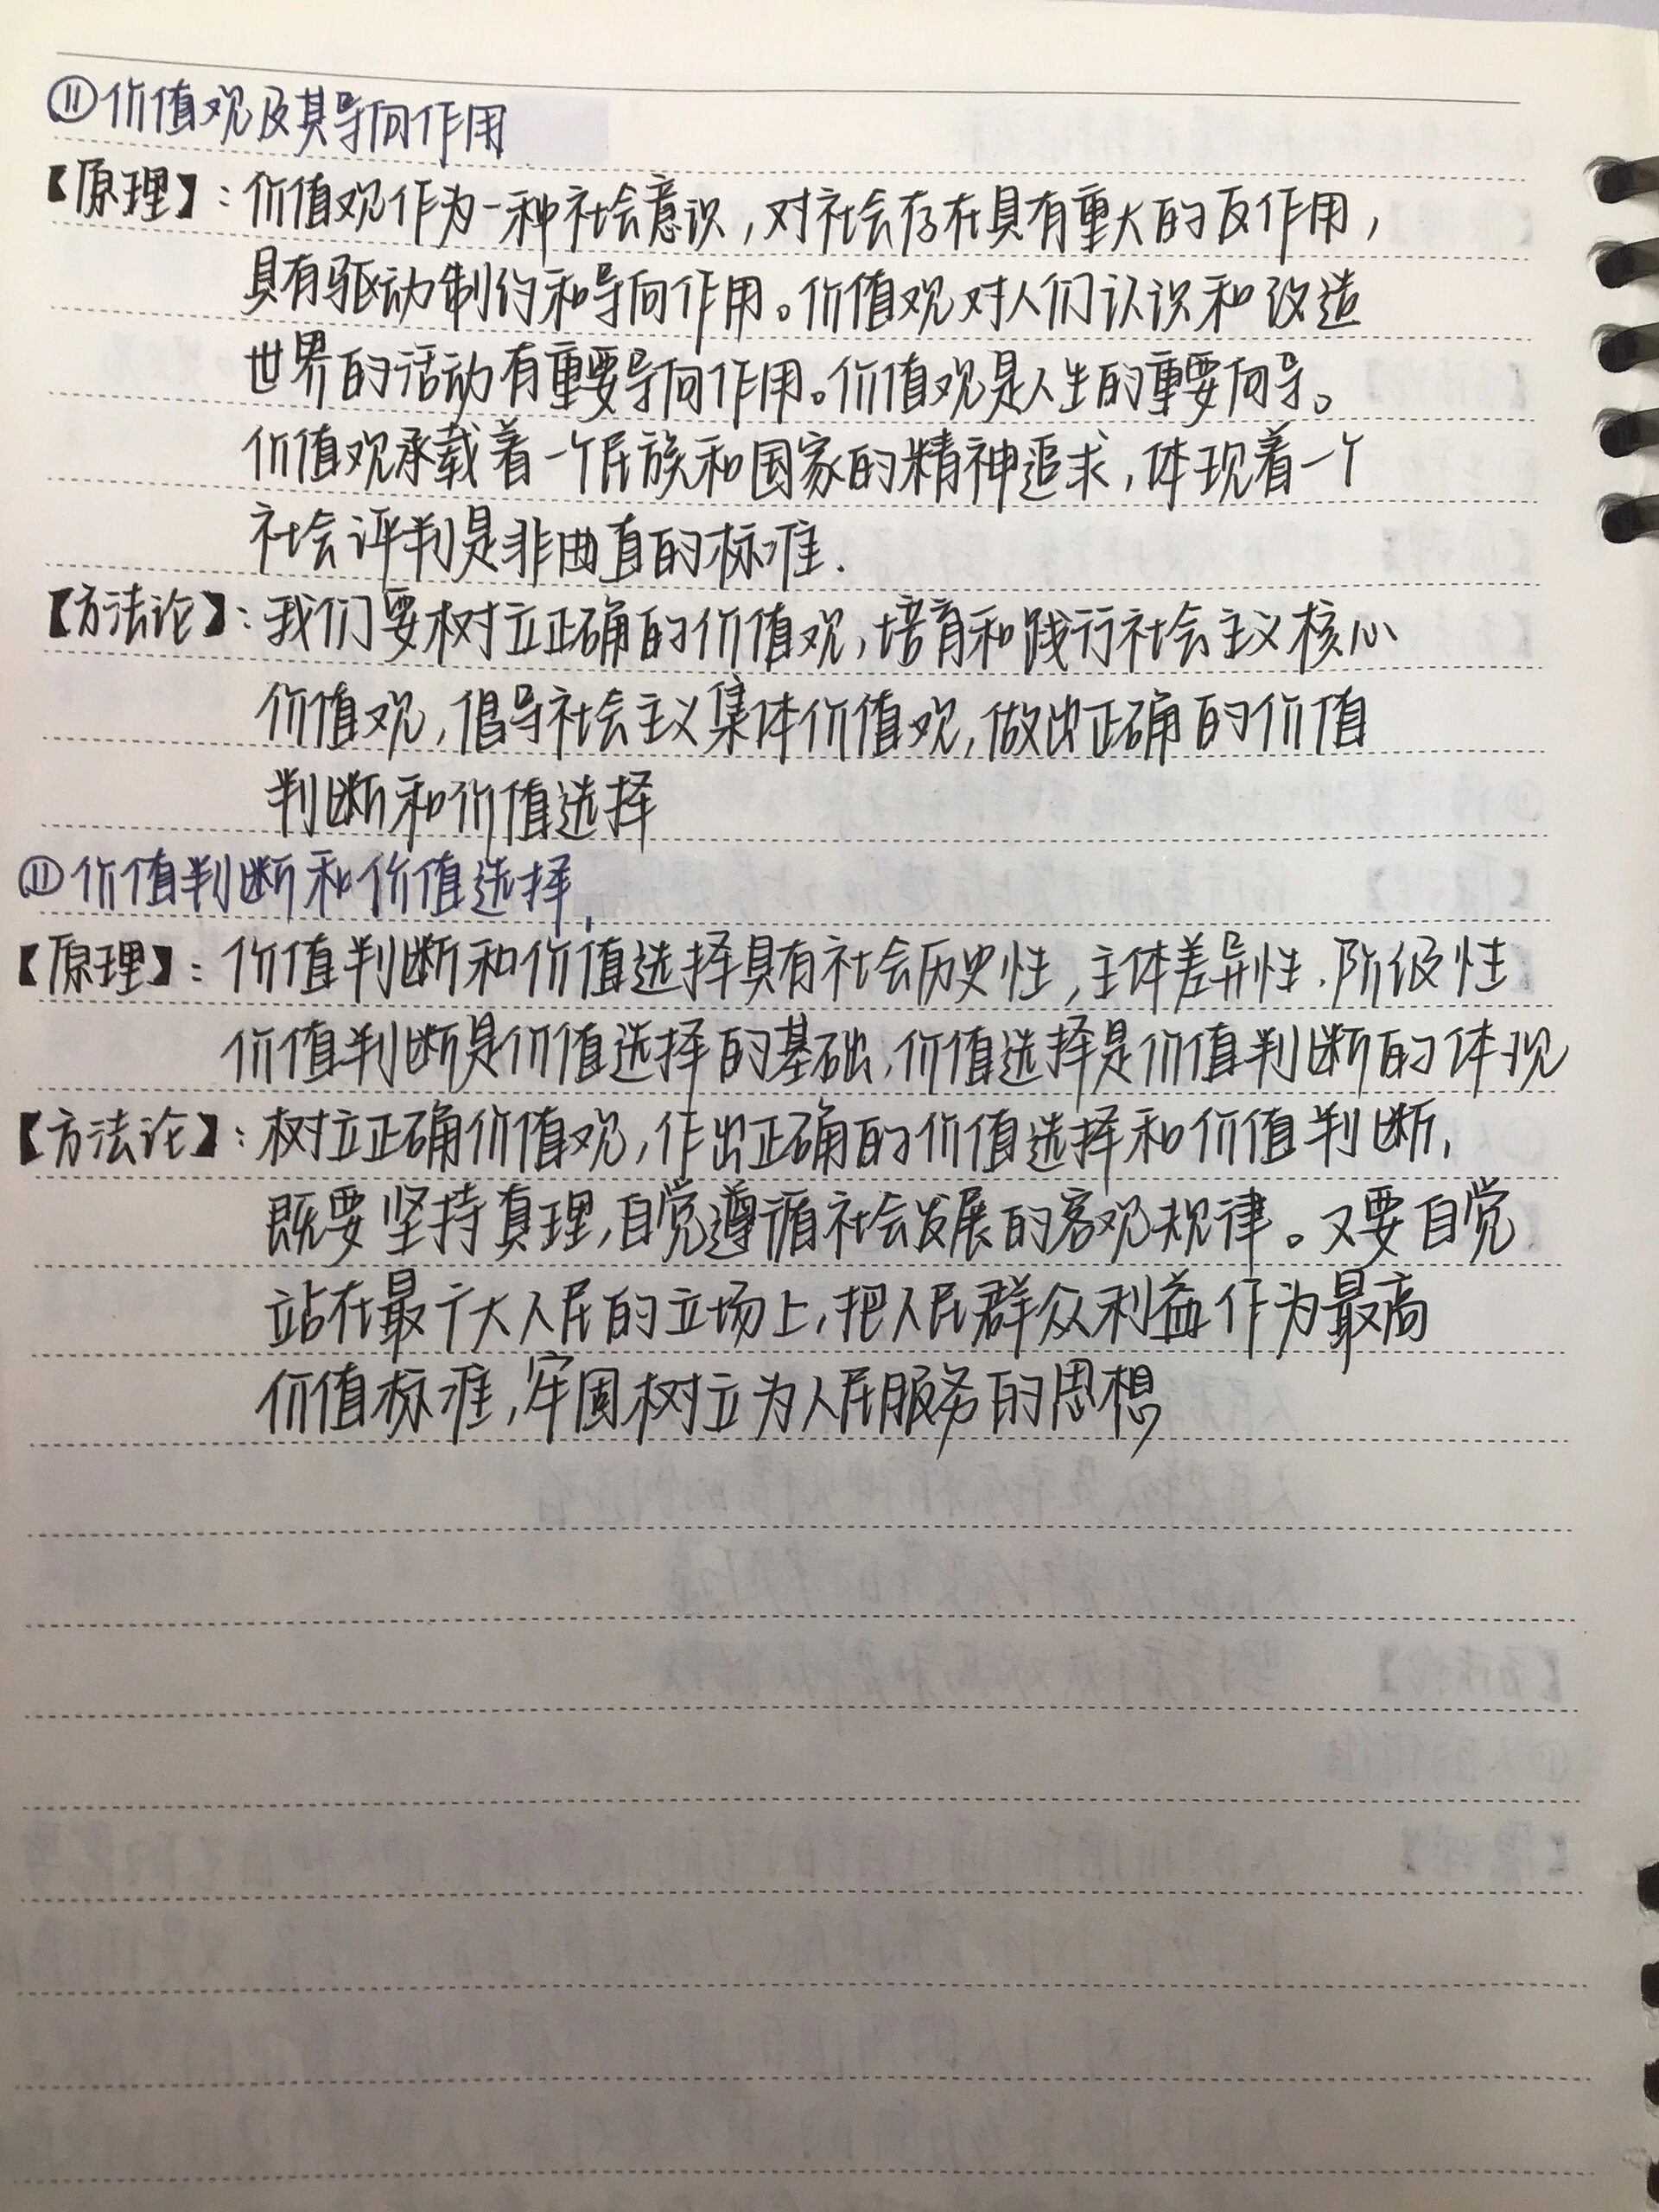 ⑪价值观及其导向作用
【原理】：价值观作为一种社会意识，对社会存在具有重大的反作用，
具有驱动制约和导向作用。价值观对人们认识和改造
世界的活动有重要导向作用。价值观是人生的重要向导。
价值观承载着一个民族和国家的精神追求，体现着一个
社会评判是非曲直的标准.
【方法论】：我们要树立正确的价值观，培育和践行社会主义核心
价值观，倡导社会主义集体价值观，做出正确的价值
判断和价值选择
⑪价值判断和价值选择，
【原理】：价值判断和价值选择具有社会历史性，主体差异性、阶级性
价值判断是价值选择的基础，价值选择是价值判断的体现
【方法论】：树立正确价值观，作出正确的价值选择和价值判断，
既要坚持真理，自觉遵循社会发展的客观规律。又要自觉
站在最广大人民的立场上，把人民群众利益作为最高
价值标准，牢固树立为人民服务的思想